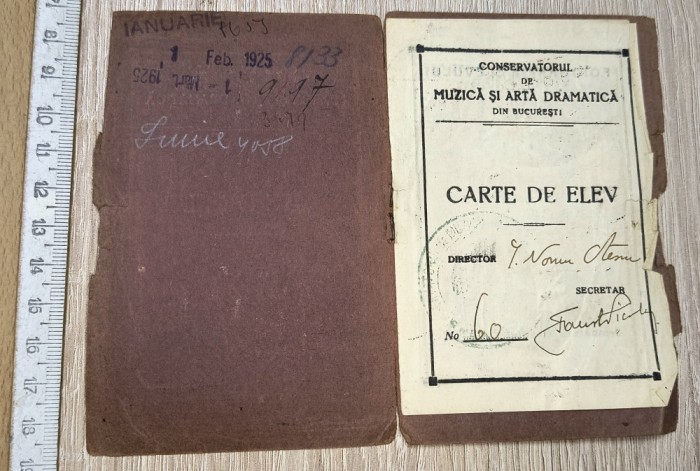 IANUARIE
1 Feb. 1925 8133
1 - Mart. 1925
997
Iunie 4058
CONSERVATORUL
DE
MUZICĂ ȘI ARTĂ DRAMATICĂ
DIN BUCUREȘTI
CARTE DE ELEV
DIRECTOR I. Nonna Otescu
SECRETAR
No 60
8
9
10
11
12
13
14
15
16
17
18